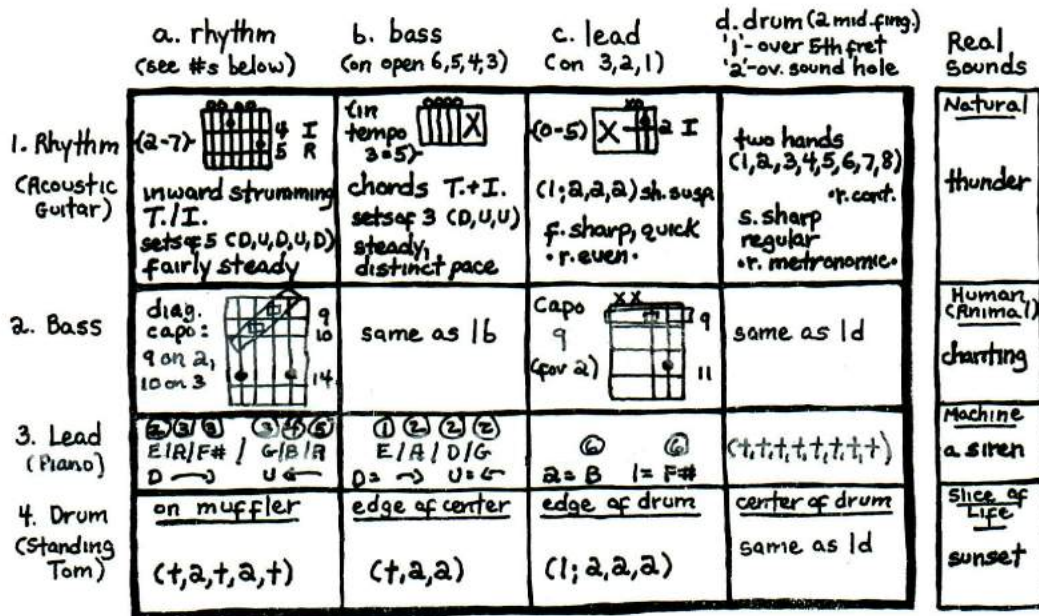 a. rhythm
(see #s below)
b. bass
(on open 6,5,4,3)
c. lead
(on 3,2,1)
d. drum (2 mid. fing.)
'1'- over 5th fret
'2'-ov. sound hole
Real
Sounds
1. Rhythm
(Acoustic
Guitar)
(2-7)
4 I
5 R
inward strumming
T./I.
sets of 5 (D,U,D,U,D)
fairly steady
(in
tempo
3=5)
X
chords T.+I.
sets of 3 (D,U,U)
steady,
distinct pace
(0-5)
X
xo
2 I
(1;2,2,2) sh. susp
f. sharp, quick
•r. even•
two hands
(1,2,3,4,5,6,7,8)
•r. cont.
s. sharp
regular
•r. metronomic•
Natural
thunder
2. Bass
diag.
capo:
9 on 2,
10 on 3
9
10
14
same as 1b
Capo
9
(fov 2)
xx
9
11
same as 1d
Human
(Animal)
chanting
3. Lead
(Piano)
2 3 3 3 4 5
E/A/F# / G/B/A
D → U ←
1 2 2 2
E/A/D/G
D= → U= ←
6 6
2=B 1=F#
(t,t,t,t,t,t,t,t)
Machine
a siren
4. Drum
(Standing
Tom)
on muffler
(t,2,t,2,t)
edge of center
(t,2,2)
edge of drum
(1; 2,2,2)
center of drum
same as 1d
Slice of
Life
sunset